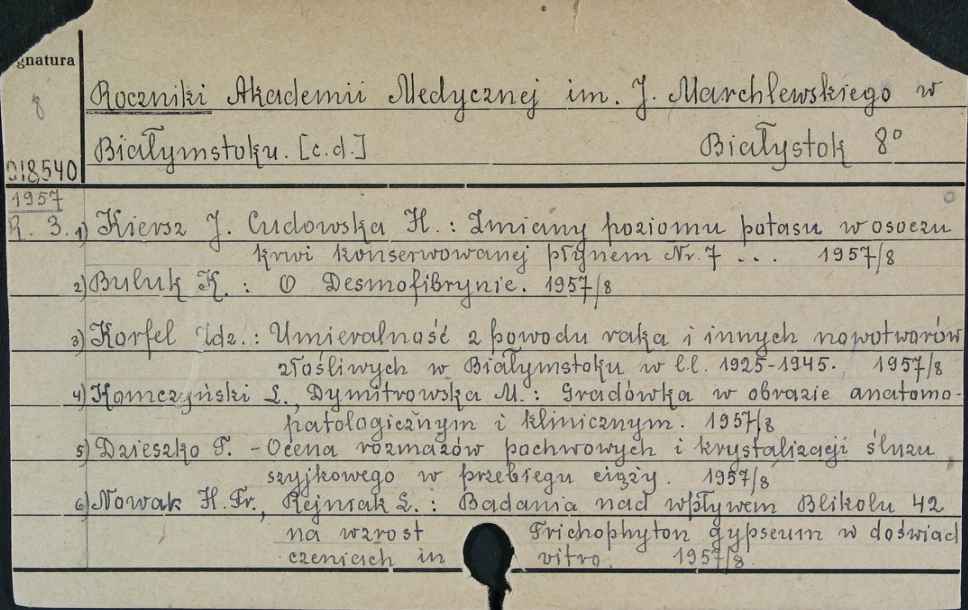 gnatura
8
018,540
Roczniki Akademii Medycznej im. J. Marchlewskiego w
Białymstoku. [c.d.] Białystok 8°
1957
R. 3. 1) Kiersz J. Cudowska H.: Zmiany poziomu potasu w osoczu
krwi konserwowanej płynem Nr. 7 ... 1957/8
2) Buluk K. : O Desmofibrynie. 1957/8
3) Korfel Zdz.: Umieralność z powodu raka i innych nowotworów
złośliwych w Białymstoku w l.l. 1925-1945. 1957/8
4) Komczyński L., Dymitrowska M.: Gradówka w obrazie anatomo-
patologicznym i klinicznym. 1957/8
5) Dzieszko T. - Ocena rozmazów pochwowych i krystalizacji śluzu
szyjkowego w przebiegu ciąży. 1957/8
6) Nowak H. Fr., Rejniak L.: Badania nad wpływem Blikolu 42
na wzrost Trichophyton gypseum w doświad
czeniach in vitro. 1957/8.